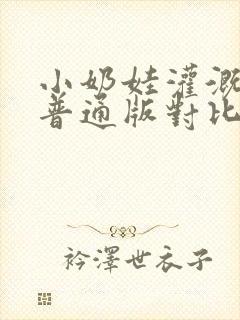 小奶娃灌溉
普通版對比
衿澤世衣子